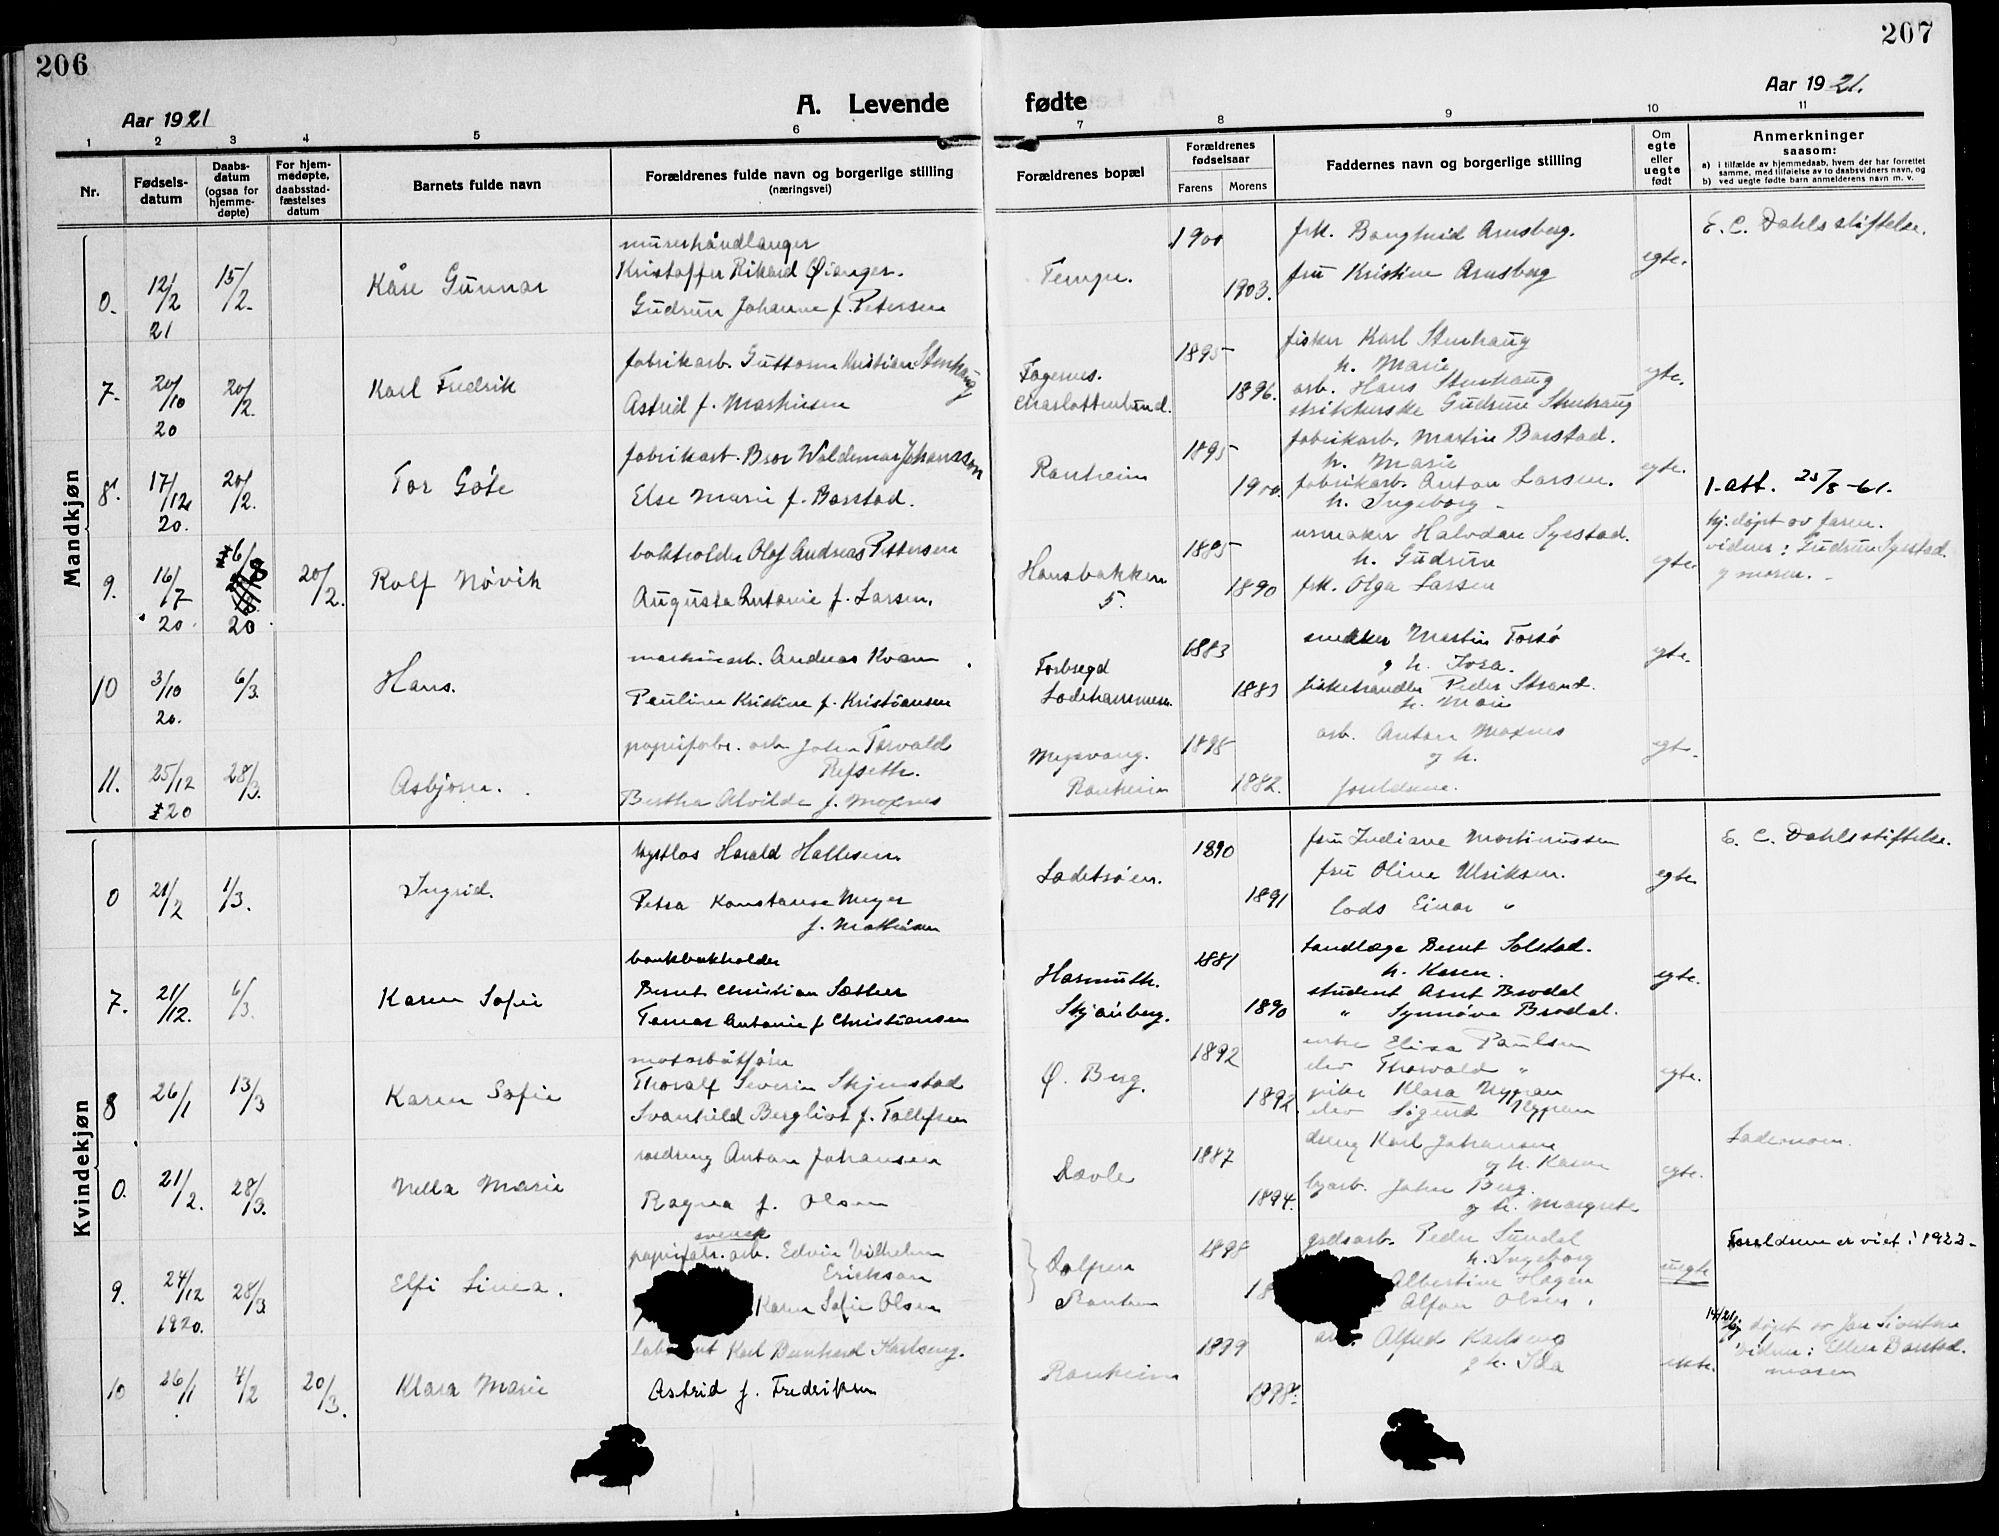 206
207
Aar 1921
A. Levende fødte
Aar 1921.
1 2 3 4 5 6 7 8 9 10 11
Nr.
Fødsels-
datum
Daabs-
datum
(ogsaa for
hjemme-
døpte)
For hjem-
medøpte,
daabsstad-
fæstelses
datum
Barnets fulde navn
Forældrenes fulde navn og borgerlige stilling
(næringsvei)
Forældrenes bopæl
Forældrenes
fødselsaar
Farens Morens
Faddernes navn og borgerlige stilling
Om
egte
eller
uegte
født
Anmerkninger
saasom:
a) i tilfælde av hjemmedaab, hvem der har forrettet
samme, med tilføielse av to daabsvidners navn, og
b) ved uegte fødte barn anmelderens navn m. v.
Mandkjøn
0. 12/2 21 15/2. Kåre Gunnar
murerhåndlanger
Kristoffer Rikard Øianger.
Gudrun Johanne f. Petersen
Tempe. 1900 1903.
frk. Borghild Arnsberg.
fru Kristine Arnsberg
egte. E. C. Dahls stiftelse.
7. 20/10 20 20/2. Karl Fredrik
fabrikarb. Guttorm Kristian Stenhaug
Astrid f. Mathisen
Fagernes.
Charlottenlund. 1895 1896.
fisker Karl Stenhaug
h. Marie
arb. Hans Stenhaug
strikkerske Gudrun Stenhaug
egte.
8. 17/12 20. 20/2. Tor Göte
fabrikarb. Bror Waldemar Johansson
Else Marie f. Barstad.
Ranheim 1895 1900.
fabrikarb. Martin Barstad.
h. Marie
fabrikarb. Anton Larsen.
h. Ingeborg
egte. 1. att. 23/8-61.
9. 16/7 20 6/8 20 20/2. Rolf Nøvik
bokholder Olaf Andreas Pettersen
Augusta Antonie f. Larsen.
Hansbakken
5. 1885 1890
urmaker Halvdan Syrstad.
h. Gudrun
frk. Olga Larsen
egte. hj. døpt av faren.
vidner: Gudrun Syrstad
og moren.
10 3/10 20. 6/3. Hans.
maskinarb. Andreas Kvam
Pauline Kristine f. Kristiansen
Forbregd
Ladehammeren. 1883 1883
snekker Martin Forsø
og h.
fiskehandler Peder Strand.
h. Marie
egte.
11. 25/12 20 28/3. Asbjørn.
papirfabr. arb John Torvald
Refseth.
Bertha Alvilde f. Moxnes
Ranheim 1895 1882.
arb. Anton Moxnes
og h.
foreldrene.
egte.
Kvindekjøn
0 21/2 1/3. Ingrid.
Harald Hallesen
Petra Konstanse Meyer
f. Mathisen
Ladetrøen. 1890 1891
fru Indiane Martinussen
fru Oline Ulriksen.
lods Einar "
egte E. C. Dahls stiftelse.
7. 21/12. 6/3. Karen Sofie
bankbokholder
Bernt Christian Sæther
Tamar Antonie f. Christiansen
Harmuth.
Skjånberg. 1881 1890
tandlæge Bernt Solstad.
h. Karen.
student Arnt Brodal
" Synnøve Brodal.
egte.
8 26/1 13/3 Karen Sofie
motorbåtfører
Thoralf Severin Skjenstad
Svanhild Bergliot f. Tollefsen
Ø. Berg. 1892 1892.
enke Elisa Paulsen
elev Thorvald "
pike Klara Nypan
elev Sigurd Nypan
egte.
0. 21/2. 28/3. Nella Marie
Anton Johansen
Ragna f. Olsen
Dævle 1887 1894.
dreng Karl Johansen
og h. Karen
byarb. John Berg.
og h. Margrete
egte. Lademoen.
9. 24/12 1920. 28/3 Elfi Linea.
svensk
papirfabr. arb. Edvin Vilhelm
Erickson
Karen Sofie Olsen
Dalpen
Ranheim 1898 18
gårdsarb. Peder Sundal
h. Ingeborg
Albertine Hagen
Alfon Olsen.
uegte Foreldrene er viet i 1922.
10 26/1 4/2 20/3. Klara Marie
Karl Bernhard Karlseng.
Astrid f. Fredriksen
Ranheim 1899 1898.
arb. Alfred Karlseng
og h. Ida
ekte. 14/21
hj. døpt av
vidner: Ellen Barstad.
moren